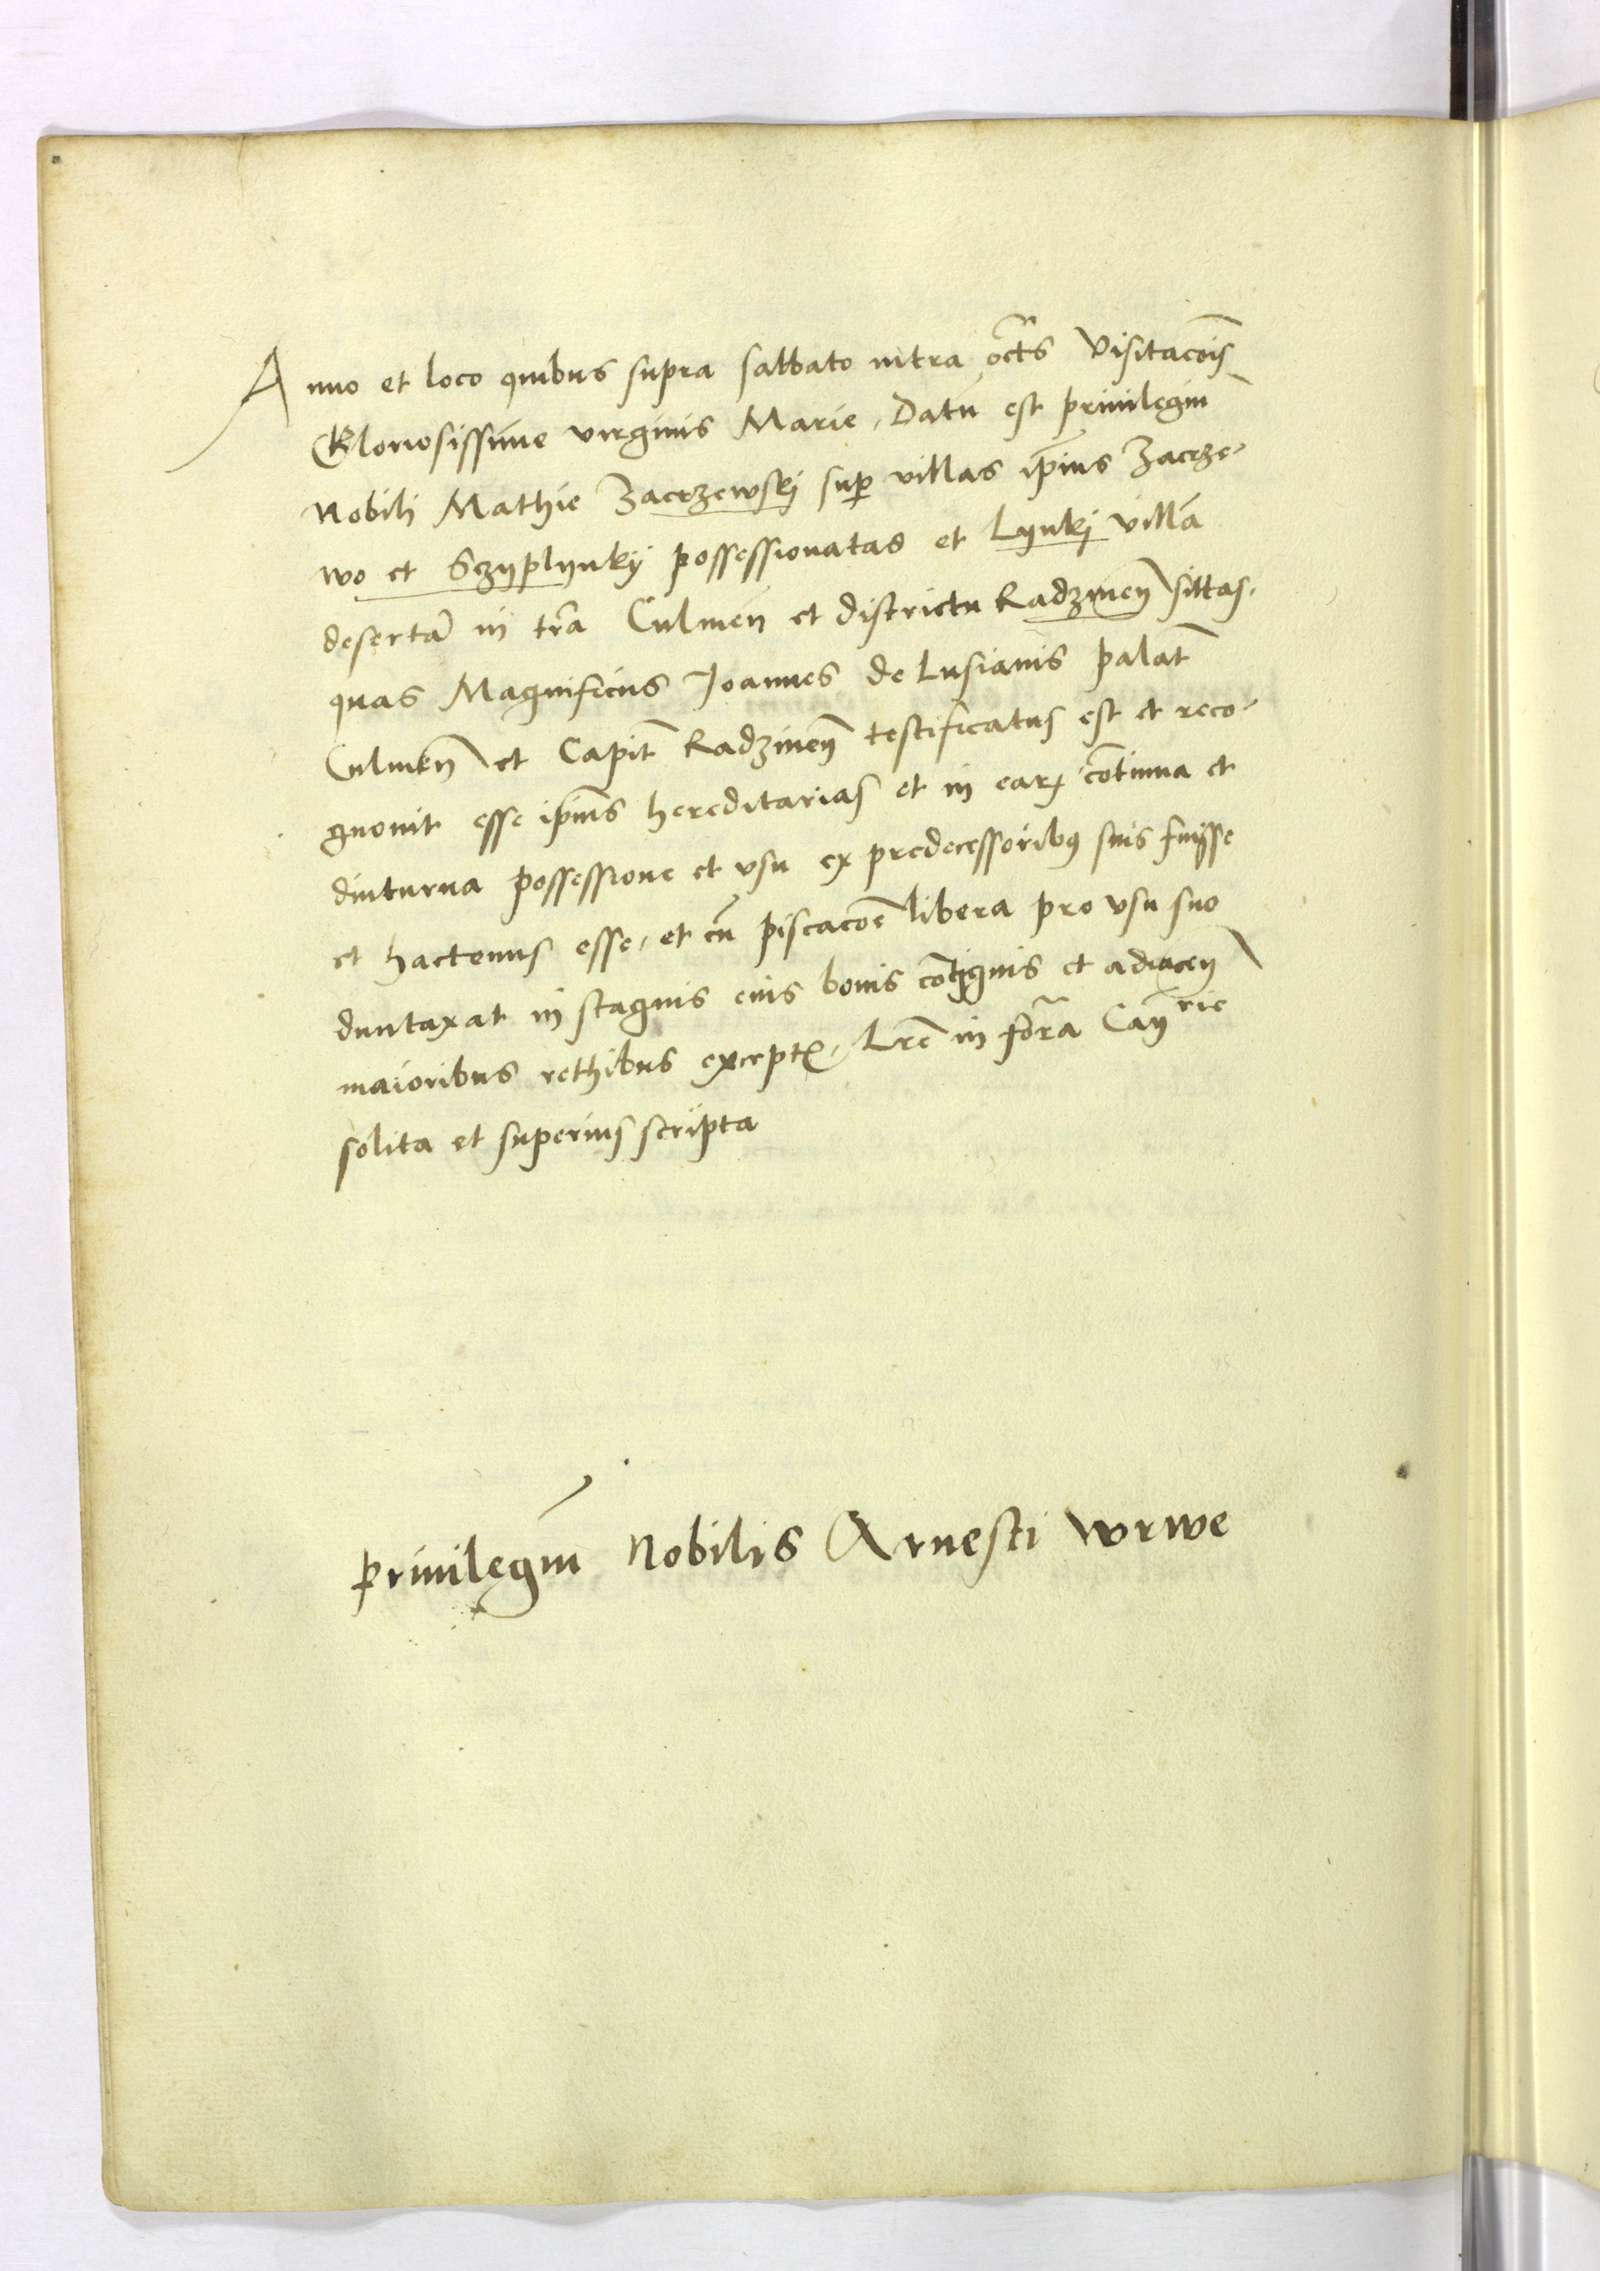 Anno et loco quibus supra sabbato intra octs̃ Visitacõis
Gloriosissime virginis Marie, Datũ est priuilegiũ
Nobili Mathie Zacrzewskj sup̱ villas ip̃ius Zacrze-
wo et Szyplynky possessionatas et Lynkj villã
desertã in tr̃a Culmeñ et districtu Radzineñ sittas,
quas Magnificus Joannes de Lusianis palat̃
Culmeñ et Capit̃ Radzineñ testificatus est et reco-
gnouit esse ip̃ius hereditarias et in earꝝ cõtinua et
diuturna possessione et vsu ex predecessoribꝯ suis fuisse
et hactenus esse, et cũ piscacõe libera pro vsu suo
duntaxat in stagnis eius bonis cõtiguis et adiaceñ
maioribus rethibus exceptꝭ, Lr̃e in for̃a Canrie
solita et superius scripta
Priuilegiũ Nobilis Arnesti Wrwe